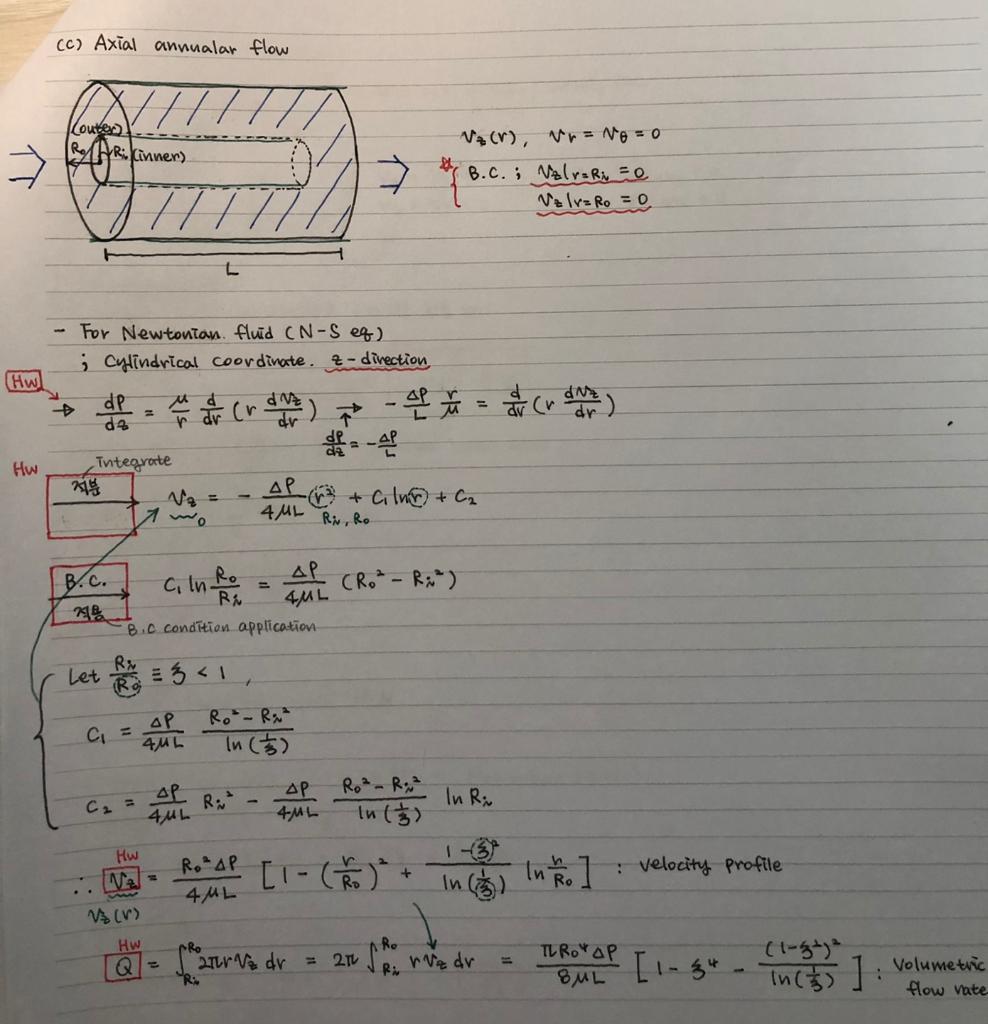 (c) Axial annualar flow
(outer)
Ro
Ri (inner)
L
Vz(r), Vr = Vθ = 0
B.C. ; Vz|r=Ri = 0
Vz|r=Ro = 0
- For Newtonian fluid (N-S eq)
; Cylindrical coordinate. z-direction
Hw
→ dP/dz = μ/r d/dr (r dVz/dr) → - ΔP/L r/μ = d/dr (r dVz/dr)
dP/dz = - ΔP/L
Hw
integrate
적분
Vz = - ΔP/4μL r² + C₁ ln r + C₂
0
Ri, Ro
B.C.
적용
C₁ ln Ro/Ri = ΔP/4μL (Ro² - Ri²)
B.C condition application
Let Ri/Ro ≡ ξ < 1 ,
C₁ = ΔP/4μL (Ro² - Ri²)/ln(1/ξ)
C₂ = ΔP/4μL Ri² - ΔP/4μL (Ro² - Ri²)/ln(1/ξ) ln Ri
Hw
∴ Vz = Ro²ΔP/4μL [1 - (r/Ro)² + (1-ξ²)/ln(1/ξ) ln r/Ro] : velocity profile
Vz(r)
Hw
Q = ∫Ri^Ro 2πr Vz dr = 2π ∫Ri^Ro r Vz dr = πRo⁴ΔP/8μL [1 - ξ⁴ - (1-ξ²)²/ln(1/ξ)] : Volumetric
flow rate